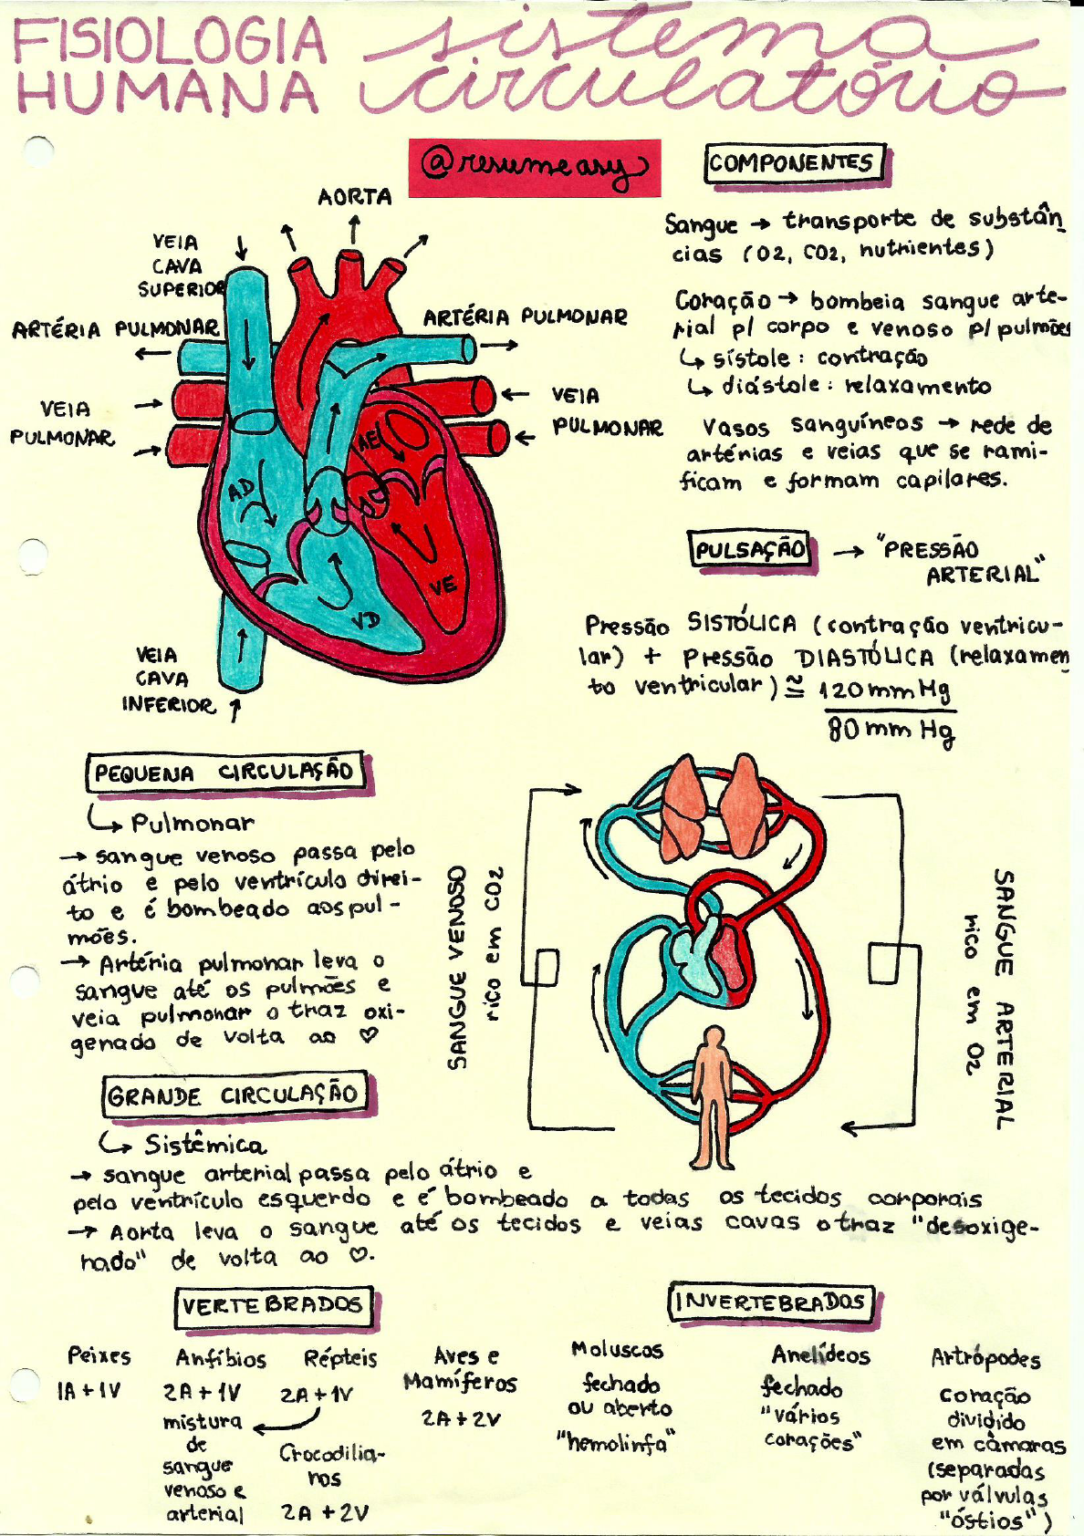 FISIOLOGIA
HUMANA
sistema
circulatório
@resumeasy
AORTA
VEIA
CAVA
SUPERIOR
ARTÉRIA PULMONAR
ARTÉRIA PULMONAR
VEIA
PULMONAR
VEIA
PULMONAR
AE
AD
VE
VD
VEIA
CAVA
INFERIOR
COMPONENTES
Sangue → transporte de substân
cias (O2, CO2, nutrientes)
Coração → bombeia sangue arte-
rial p/ corpo e venoso p/ pulmões
↳ sístole: contração
↳ diástole: relaxamento
Vasos sanguíneos → rede de
artérias e veias que se rami-
ficam e formam capilares.
PULSAÇÃO → "PRESSÃO
ARTERIAL"
Pressão SISTÓLICA (contração ventricu-
lar) + Pressão DIASTÓLICA (relaxamen
to ventricular) ≅ 120 mmHg
80 mm Hg
PEQUENA CIRCULAÇÃO
↳ Pulmonar
→ sangue venoso passa pelo
átrio e pelo ventrículo direi-
to e é bombeado aos pul-
mões.
→ Artéria pulmonar leva o
sangue até os pulmões e
veia pulmonar o traz oxi-
genado de volta ao ♡
SANGUE VENOSO
rico em CO2
SANGUE ARTERIAL
rico em O2
GRANDE CIRCULAÇÃO
↳ Sistêmica
→ sangue arterial passa pelo átrio e
pelo ventrículo esquerdo e é bombeado a todas os tecidos corporais
→ Aorta leva o sangue até os tecidos e veias cavas o traz "desoxige-
nado" de volta ao ♡.
VERTEBRADOS
Peixes
1A+1V
Anfíbios
2A+1V
mistura
de
sangue
venoso e
arterial
Répteis
2A+1V
Crocodilia-
nos
2A+2V
Aves e
Mamíferos
2A+2V
INVERTEBRADOS
Moluscos
fechado
ou aberto
"hemolinfa"
Anelídeos
fechado
"vários
corações"
Artrópodes
coração
dividido
em câmaras
(separadas
por válvulas
"óstios")